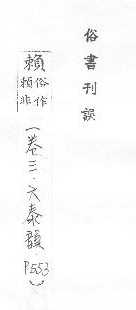 俗書刊誤
賴俗作頼非(卷三.六泰韻 P553)